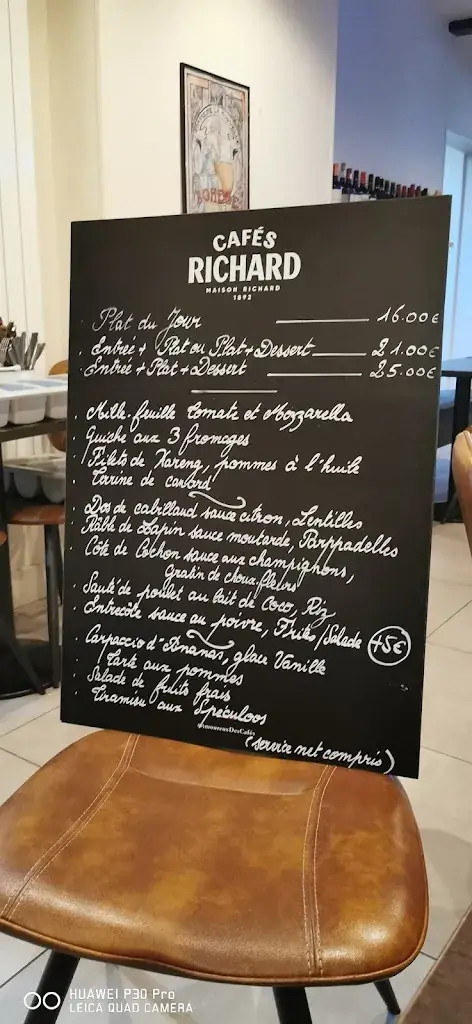 BOHEME
CAFÉS
RICHARD
MAISON RICHARD
1892
Plat du Jour 16.00€
. Entrée + Plat ou Plat + Dessert 21.00€
. Entrée + Plat + Dessert 25.00€
. Mille-feuille Tomate et Mozzarella
. Quiche aux 3 fromages
. Filets de Hareng, pommes à l'huile
. Terrine de canard
. Dos de cabillaud sauce citron, Lentilles
. Râble de Lapin sauce moutarde, Parppadelles
. Côte de Cochon sauce aux champignons,
Gratin de choux fleurs
. Sauté de poulet au lait de Coco, Riz
. Entrecôte sauce au poivre, Frites/Salade +5€
. Carpaccio d'Ananas, glace Vanille
. Tarte aux pommes
. Salade de fruits frais
. Tiramisu aux Spéculoos
#AmoureuxDesCafés
(service net compris)
HUAWEI P30 Pro
LEICA QUAD CAMERA